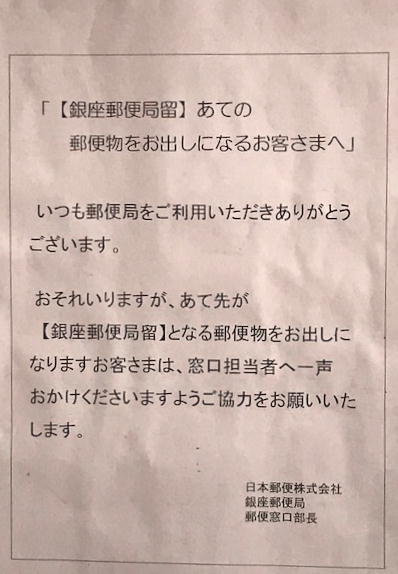 「【銀座郵便局留】あての
郵便物をお出しになるお客さまへ」
いつも郵便局をご利用いただきありがとう
ございます。
おそれいりますが、あて先が
【銀座郵便局留】となる郵便物をお出しに
なりますお客さまは、窓口担当者へ一声
おかけくださいますようご協力をお願いいた
します。
日本郵便株式会社
銀座郵便局
郵便窓口部長